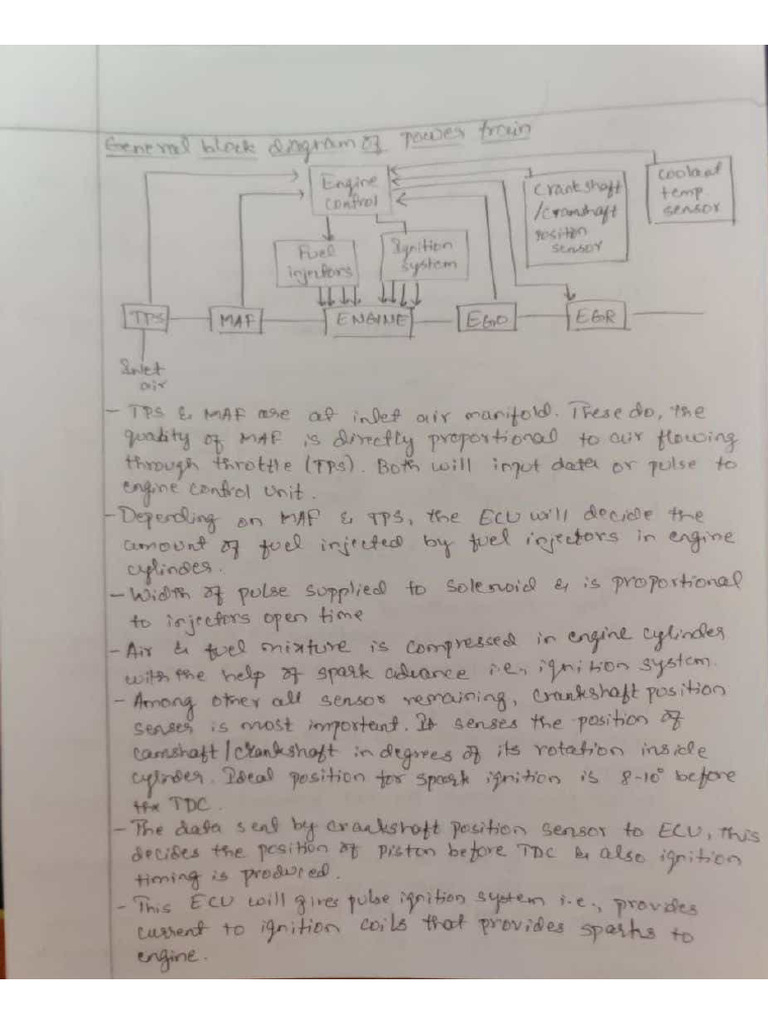 General block diagram of power train
Engine
control
Crankshaft
/Cramshaft
position
sensor
coolant
temp.
sensor
Fuel
injectors
Ignition
system
TPS
MAF
ENGINE
EGO
EGR
Inlet
air
- TPS & MAF are at inlet air manifold. These do, the
quality of MAF is directly proportional to air flowing
through throttle (TPS). Both will input data or pulse to
engine control unit.
- Depending on MAF & TPS, the ECU will decide the
amount of fuel injected by fuel injectors in engine
cylinder.
- Width of pulse supplied to solenoid & is proportional
to injectors open time
- Air & fuel mixture is compressed in engine cylinder
with the help of spark advance i.e., ignition system.
- Among other all sensor remaining, crankshaft position
senses is most important. It senses the position of
camshaft/crankshaft in degrees of its rotation inside
cylinder. Ideal position for spark ignition is 8-10° before
the TDC.
- The data sent by crankshaft position sensor to ECU, this
decides the position of piston before TDC & also ignition
timing is produced.
- This ECU will gives pulse ignition system i.e., provides
current to ignition coils that provides sparks to
engine.